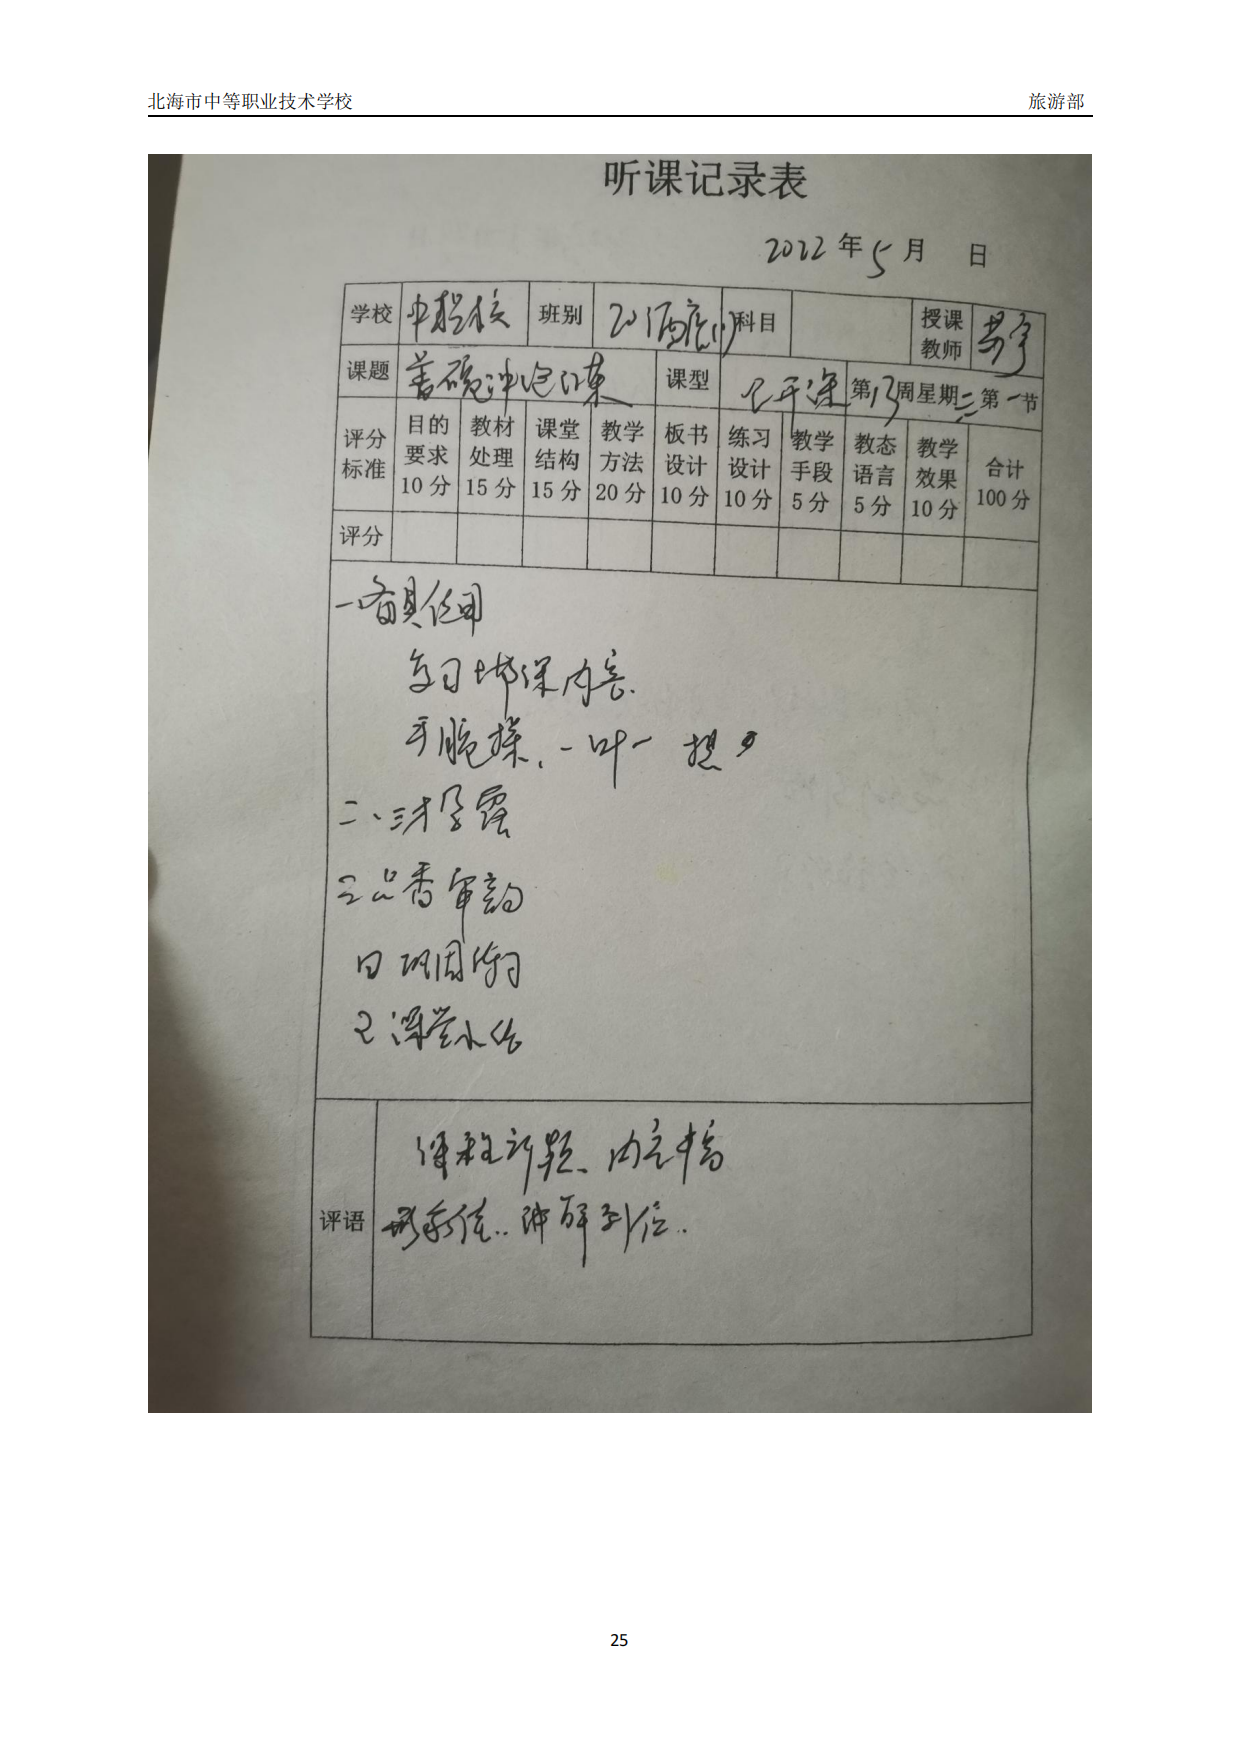 北海市中等职业技术学校 旅游部
听课记录表
2022年5月 日
学校 班别 科目 授课教师
课题 盖碗冲泡训练 课型 公开课 第13周星期三第一节
评分标准 目的要求10分 教材处理15分 课堂结构15分 教学方法20分 板书设计10分 练习设计10分 教学手段5分 教态语言5分 教学效果10分 合计100分
评分
一、
复习上节课内容.
手腕操、一叶一
二、三才孕露
三品香审韵
四 巩固练习
五 课堂小结
课程新颖、内容丰富
评语
讲解到位..
25